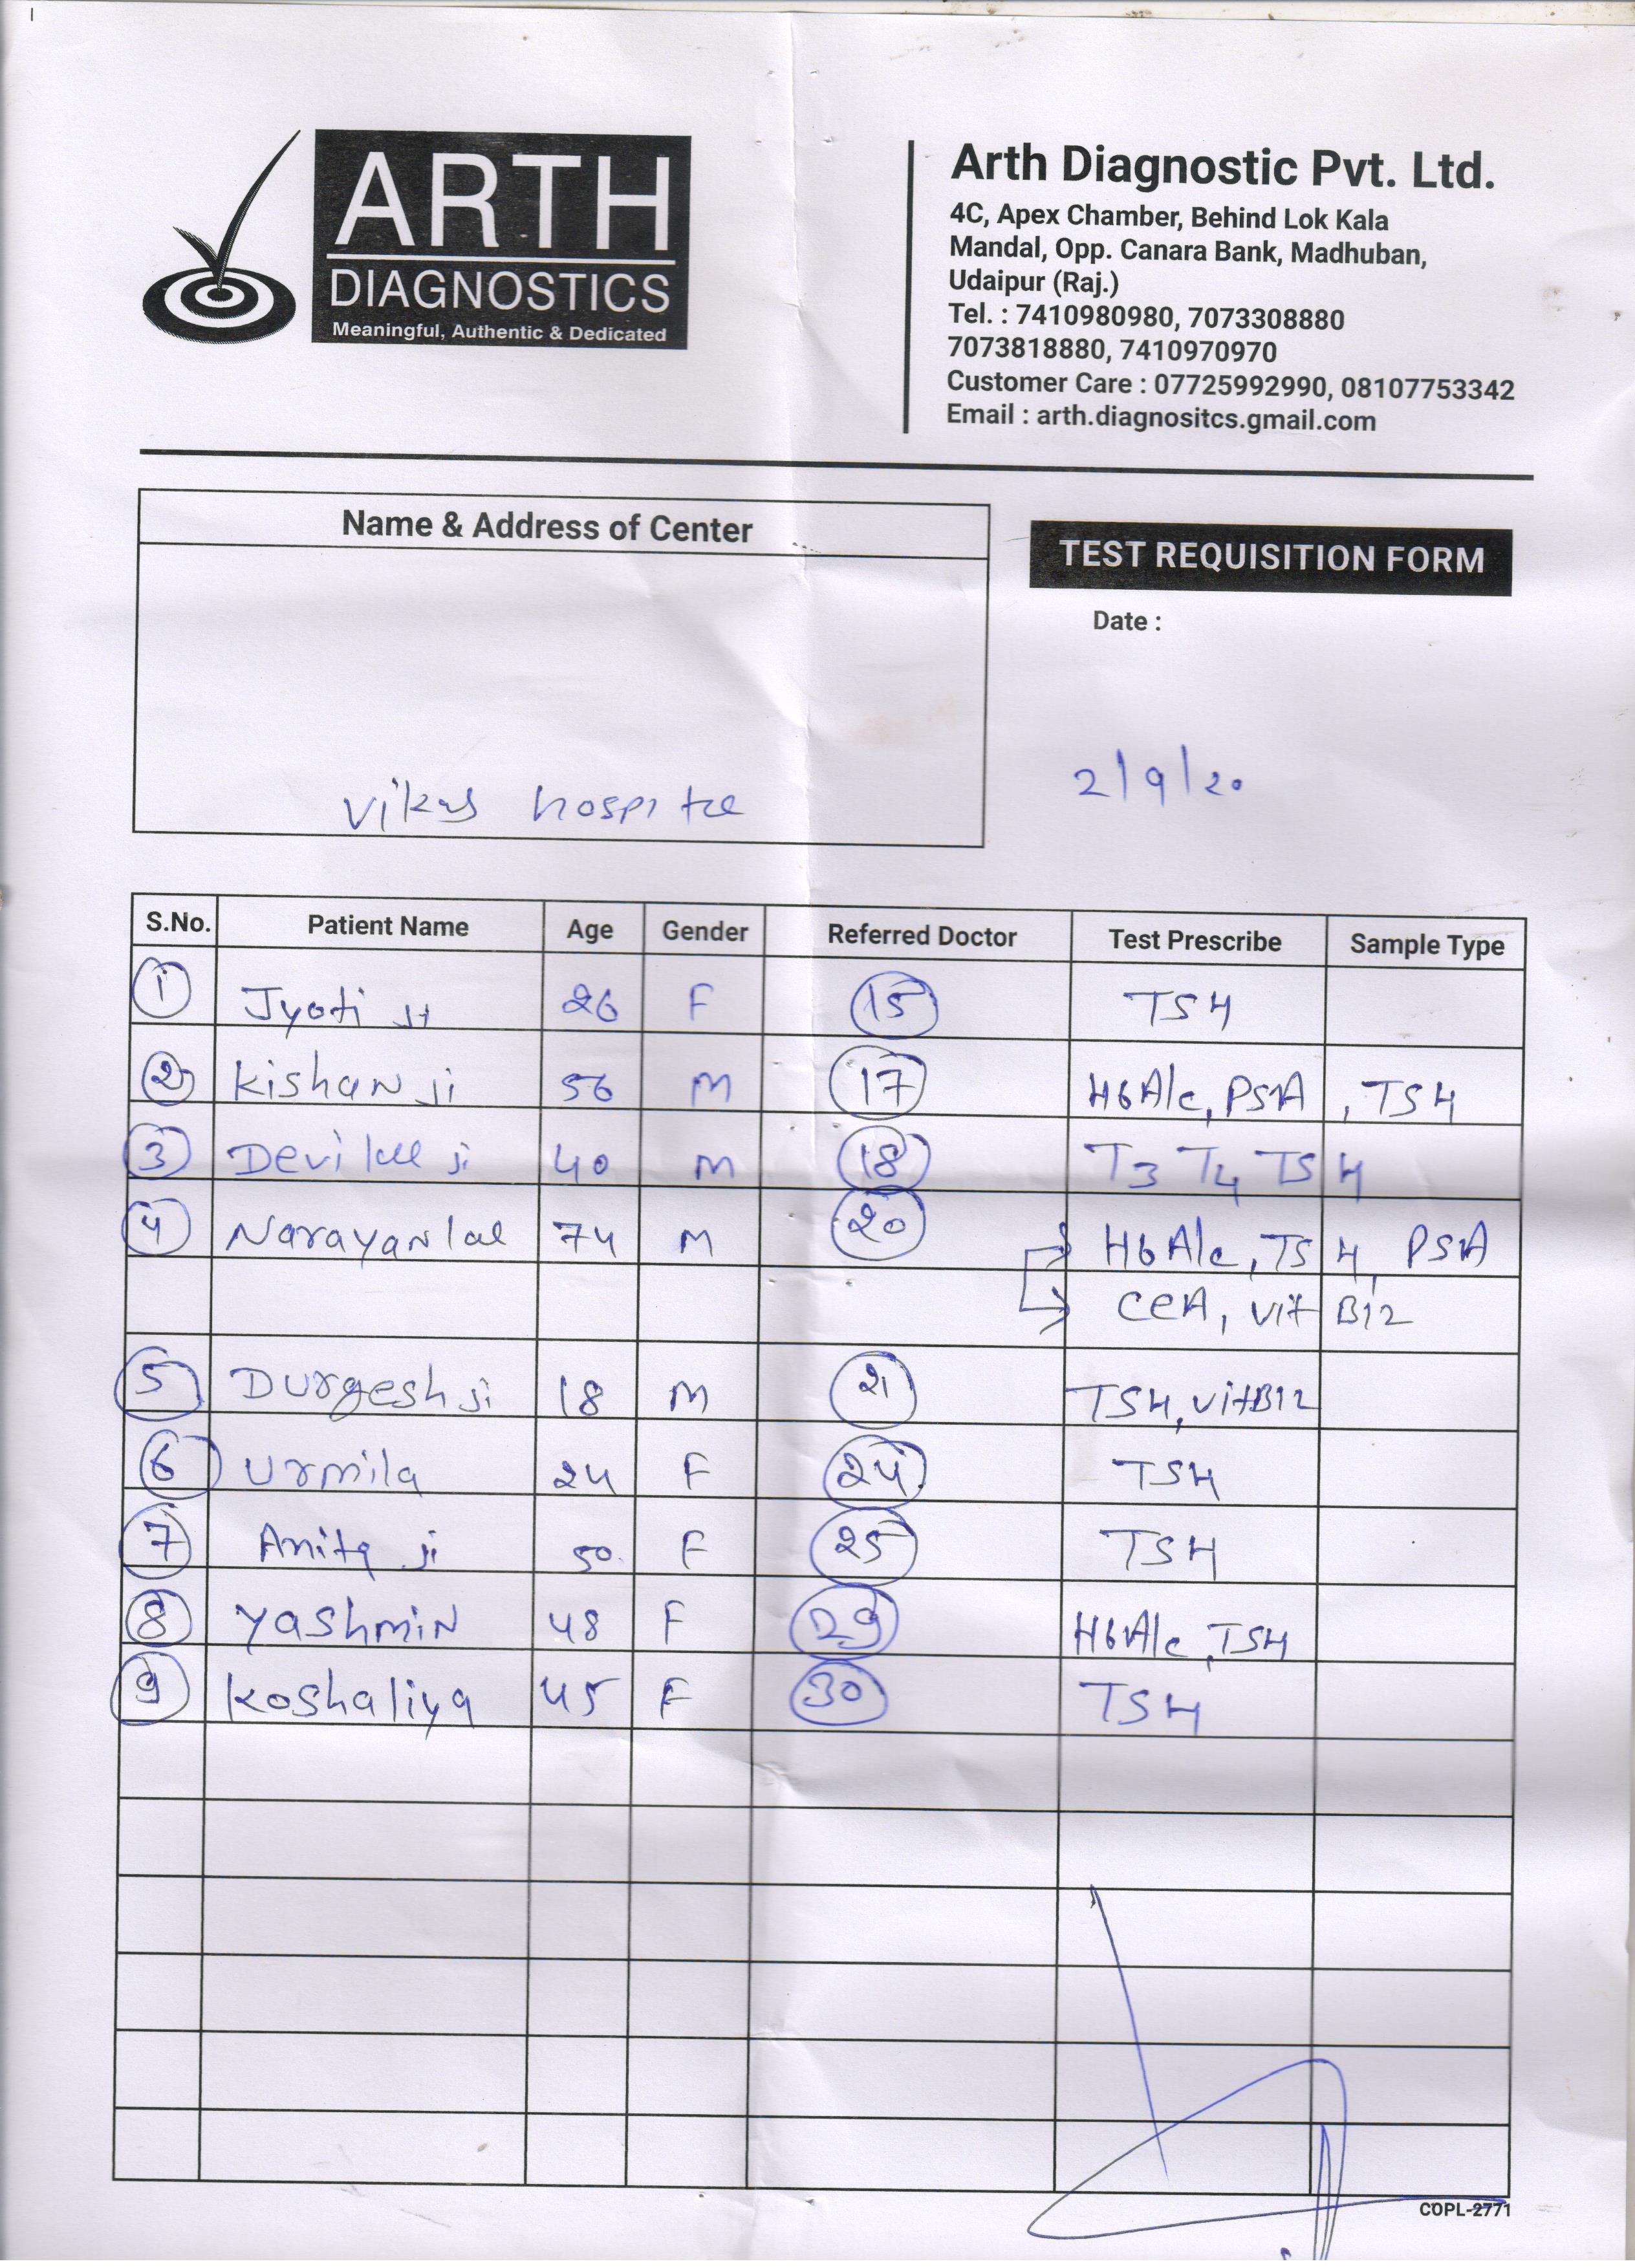 ARTH
DIAGNOSTICS
Meaningful, Authentic & Dedicated
Arth Diagnostic Pvt. Ltd.
4C, Apex Chamber, Behind Lok Kala
Mandal, Opp. Canara Bank, Madhuban,
Udaipur (Raj.)
Tel. : 7410980980, 7073308880
7073818880, 7410970970
Customer Care : 07725992990, 08107753342
Email : arth.diagnositcs.gmail.com
Name & Address of Center
TEST REQUISITION FORM
Date :
2/9/20
Vikas hospital
S.No. Patient Name Age Gender Referred Doctor Test Prescribe Sample Type
1 Jyoti Ji 26 F 15 TSH
2 Kishan ji 56 M 17 HbA1c, PSA, TSH
3 Devilal ji 40 M 18 T3 T4 TSH
4 Narayanlal 74 M 20 HbA1c, TSH, PSA
CEA, Vit B12
5 Durgesh ji 18 M 21 TSH, Vit B12
6 Urmila 24 F 24 TSH
7 Anita ji 50 F 25 TSH
8 Yashmin 48 F 29 HbA1c, TSH
9 Koshaliya 45 F 30 TSH
COPL-2771